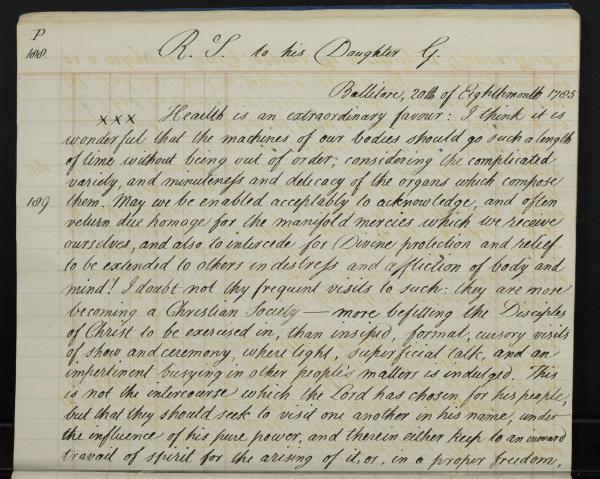 P
188.
R. S. to his Daughter G.
Ballitore, 20th of Eighthmonth 1785
xxx Health is an extraordinary favour: I think it is
wonderful that the machines of our bodies should go such a length
of time without being out of order; considering the complicated
variety, and minuteness and delicacy of the organs which compose
189 them. May we be enabled acceptably to acknowledge, and often
return due homage for the manifold mercies which we receive
ourselves, and also to intercede for Divine protection and relief
to be extended to others in distress and affliction of body and
mind! I doubt not thy frequent visits to such: they are more
becoming a Christian Society — more befitting the Disciples
of Christ to be exercised in, than insipid, formal, cursory visits
of show and ceremony, where light, superficial talk, and an
impertinent busying in other people's matters is indulged. This
is not the intercourse which the Lord has chosen for his people,
but that they should seek to visit one another in his name, under
the influence of his pure power, and therein either keep to an inward
travail of spirit for the arising of it, or, in a proper freedom,